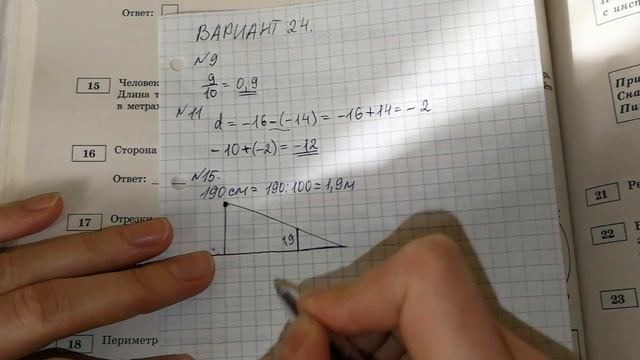 Ответ:
ВАРИАНТ 24.
№9
9/10 = 0,9
15 Человек
Длина т
в метрах
№11
d = -16-(-14) = -16+14 = -2
-10+(-2) = -12
16 Сторона
Ответ:
№15.
190см = 190:100 = 1,9м
17 Отрезки
1,9
18 Периметр
с инст
При
Сна
Пи
21 Ре
22
23